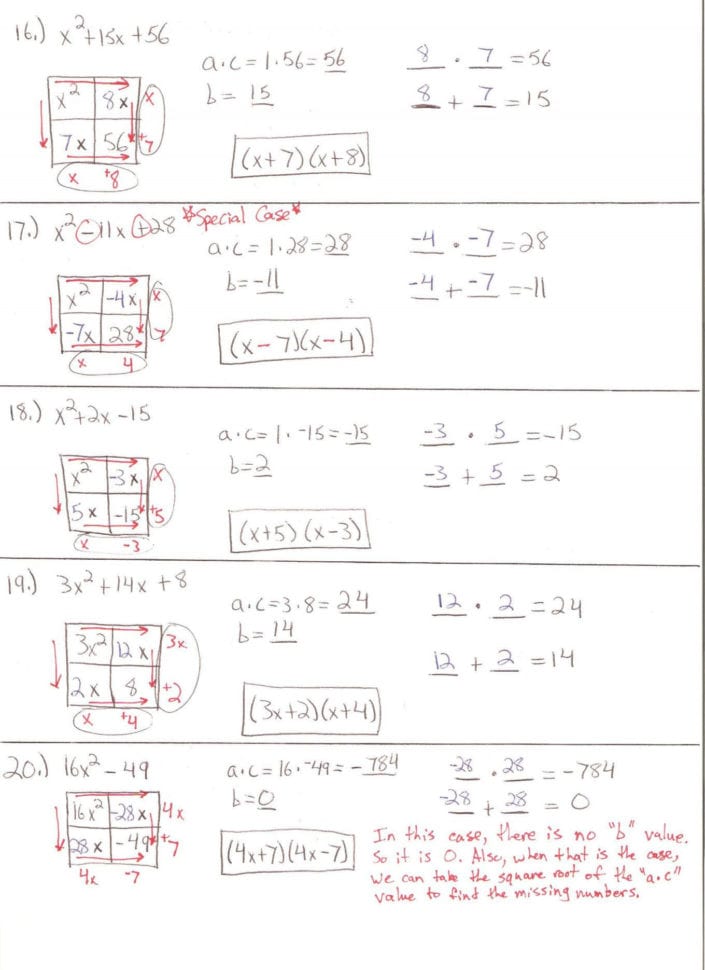 16.) x²+15x+56
a·c=1·56=56
b=15
8 · 7 =56
8 + 7 =15
x² 8x x
7x 56 +7
x +8
(x+7)(x+8)
17.) x²-11x+28 *Special Case*
a·c=1·28=28
b=-11
-4 · -7 =28
-4 + -7 =-11
x² -4x x
-7x 28 7
x 4
(x-7)(x-4)
18.) x²+2x-15
a·c=1·-15=-15
b=2
-3 · 5 =-15
-3 + 5 =2
x² -3x x
5x -15 +5
x -3
(x+5)(x-3)
19.) 3x²+14x+8
a·c=3·8=24
b=14
12 · 2 =24
12 + 2 =14
3x² 12x 3x
2x 8 +2
x +4
(3x+2)(x+4)
20.) 16x²-49
a·c=16·-49=-784
b=0
-28 · 28 =-784
-28 + 28 =0
16x² -28x 4x
28x -49 +7
4x -7
(4x+7)(4x-7)
In this case, there is no "b" value.
So it is 0. Also, when that is the case,
we can take the square root of the "a·c"
value to find the missing numbers.